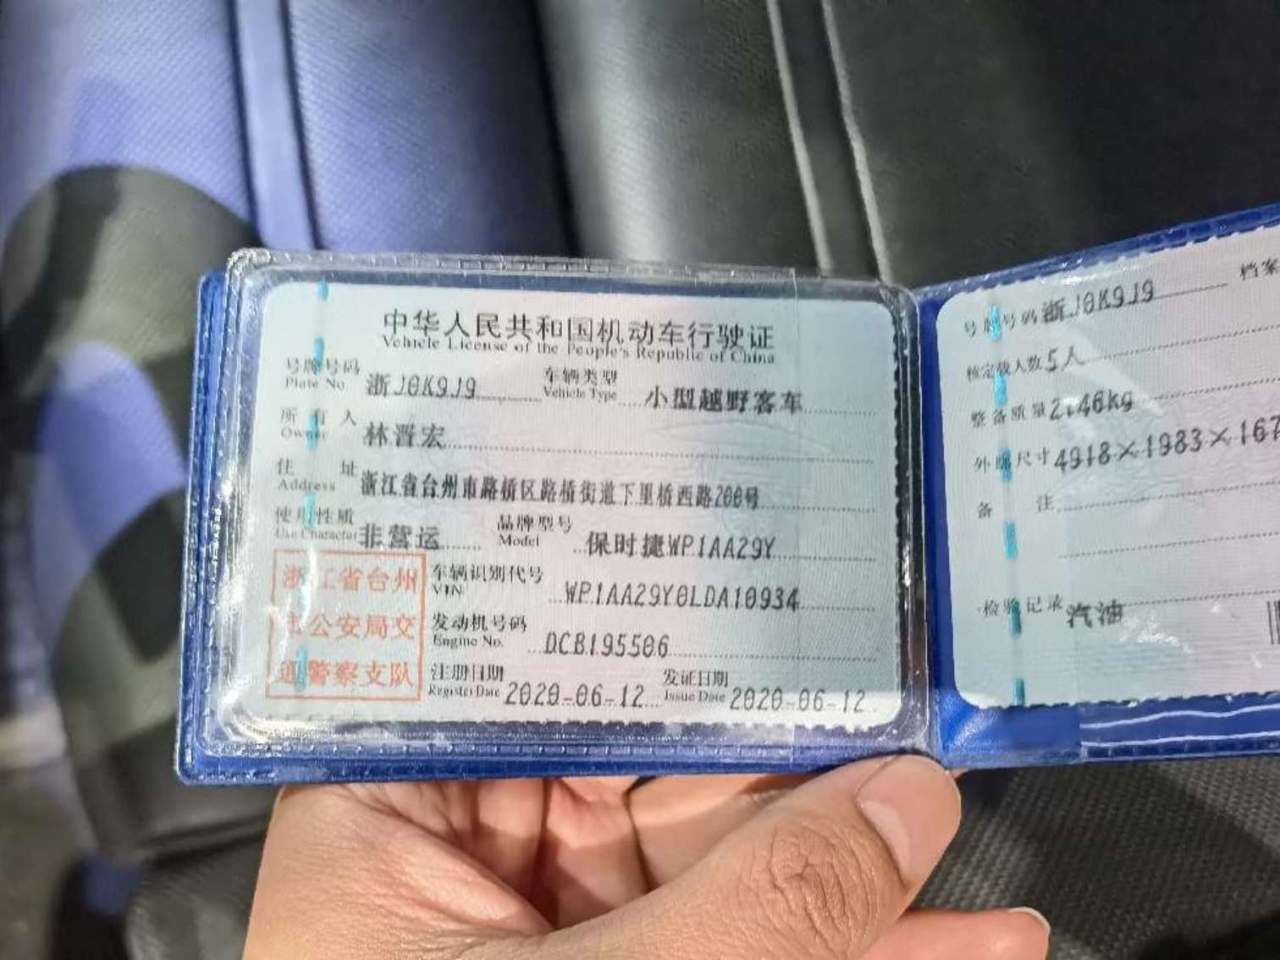 中华人民共和国机动车行驶证
Vehicle License of the People's Republic of China
号牌号码 浙J0K9J9 车辆类型 小型越野客车
Plate No. Vehicle Type
所有人 林晋宏
Owner
住址 浙江省台州市路桥区路桥街道下里桥西路200号
Address
使用性质 非营运 品牌型号 保时捷WP1AA29Y
Use Character Model
浙江省台州
市公安局交
通警察支队
车辆识别代号 WP1AA29Y0LDA10934
VIN
发动机号码 DCB195506
Engine No.
注册日期 2020-06-12 发证日期 2020-06-12
Register Date Issue Date
号牌号码 浙J0K9J9 档案
核定载人数 5人
整备质量
外廓尺寸 4918×1983×167
备注
检验记录 汽油